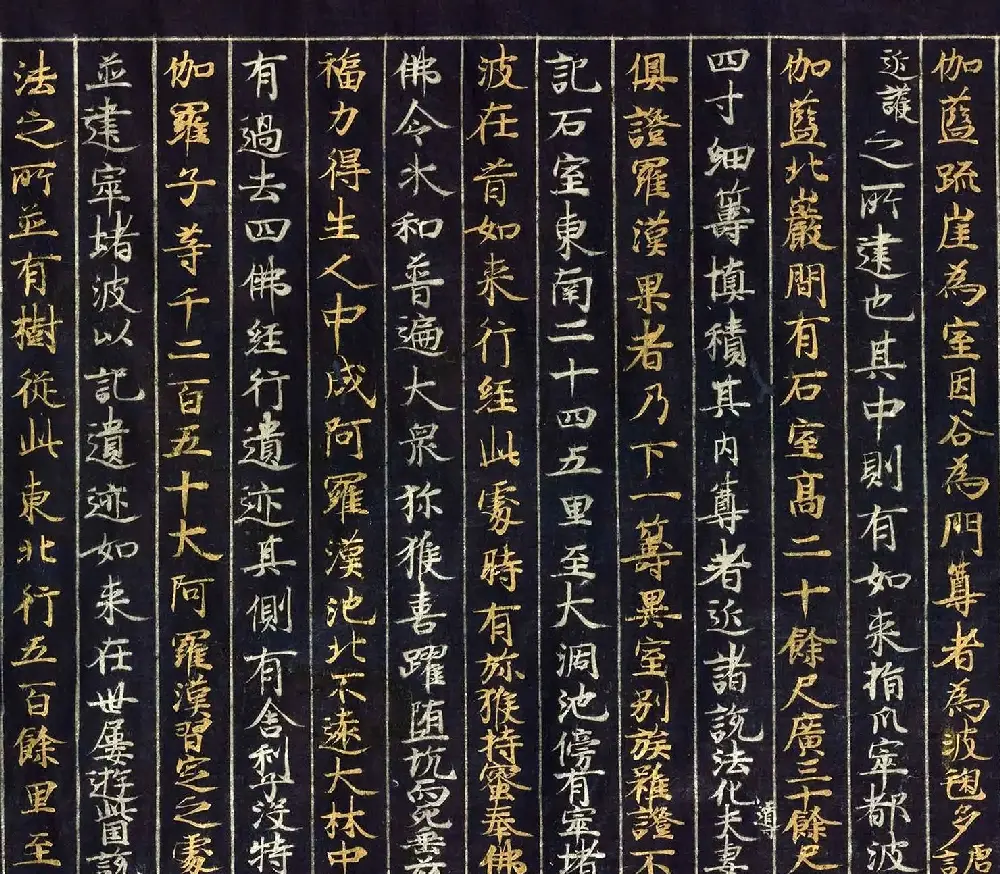 伽藍疏崖為室因谷為門尊者為波毱多唐言
近護之所建也其中則有如来指爪窣都波
伽藍北巖間有石室高二十餘尺廣三十餘尺
四寸細籌填積其内尊者近諸說法化夫妻導
俱證羅漢果者乃下一籌異室别族雖證不
記石室東南二十四五里至大涸池傍有窣堵
波在昔如来行經此處時有弥猴持蜜奉佛
佛令水和普遍大衆弥猴喜躍堕坑而死垂兹
福力得生人中成阿羅漢池北不遠大林中
有過去四佛經行遺迹其側有舍利子沒特
伽羅子等千二百五十大阿羅漢習定之處
並建窣堵波以記遺迹如来在世屢遊此國說
法之所並有樹從此東北行五百餘里至